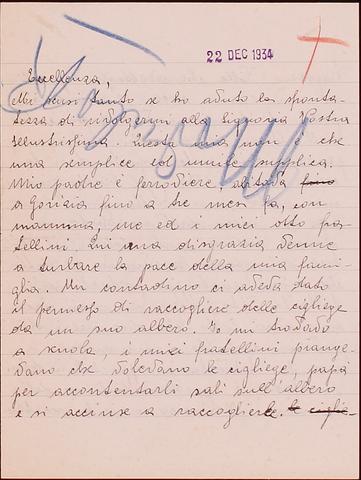 22 DEC 1934
Eccellenza,
Mi scusi tanto se ho avuto la sponta-
tezza di rivolgermi alla Signoria Vostra
Illustrissima. Questa mia non è che
una semplice ed umile supplica.
Mio padre è ferroviere, abitava fino
a Gorizia fino a tre mesi fa, con
mamma, me ed i miei otto fra-
tellini. Lui una disgrazia venne
a turbare la pace della mia fami-
glia. Un contadino ci aveva dato
il permesso di raccogliere delle ciliege
da un suo albero. Io mi trovavo
a scuola, i miei fratellini piange-
vano chè volevano le ciliege, papà
per accontentarli salì sull'albero
e si accinse a raccoglierle. le ciglie-